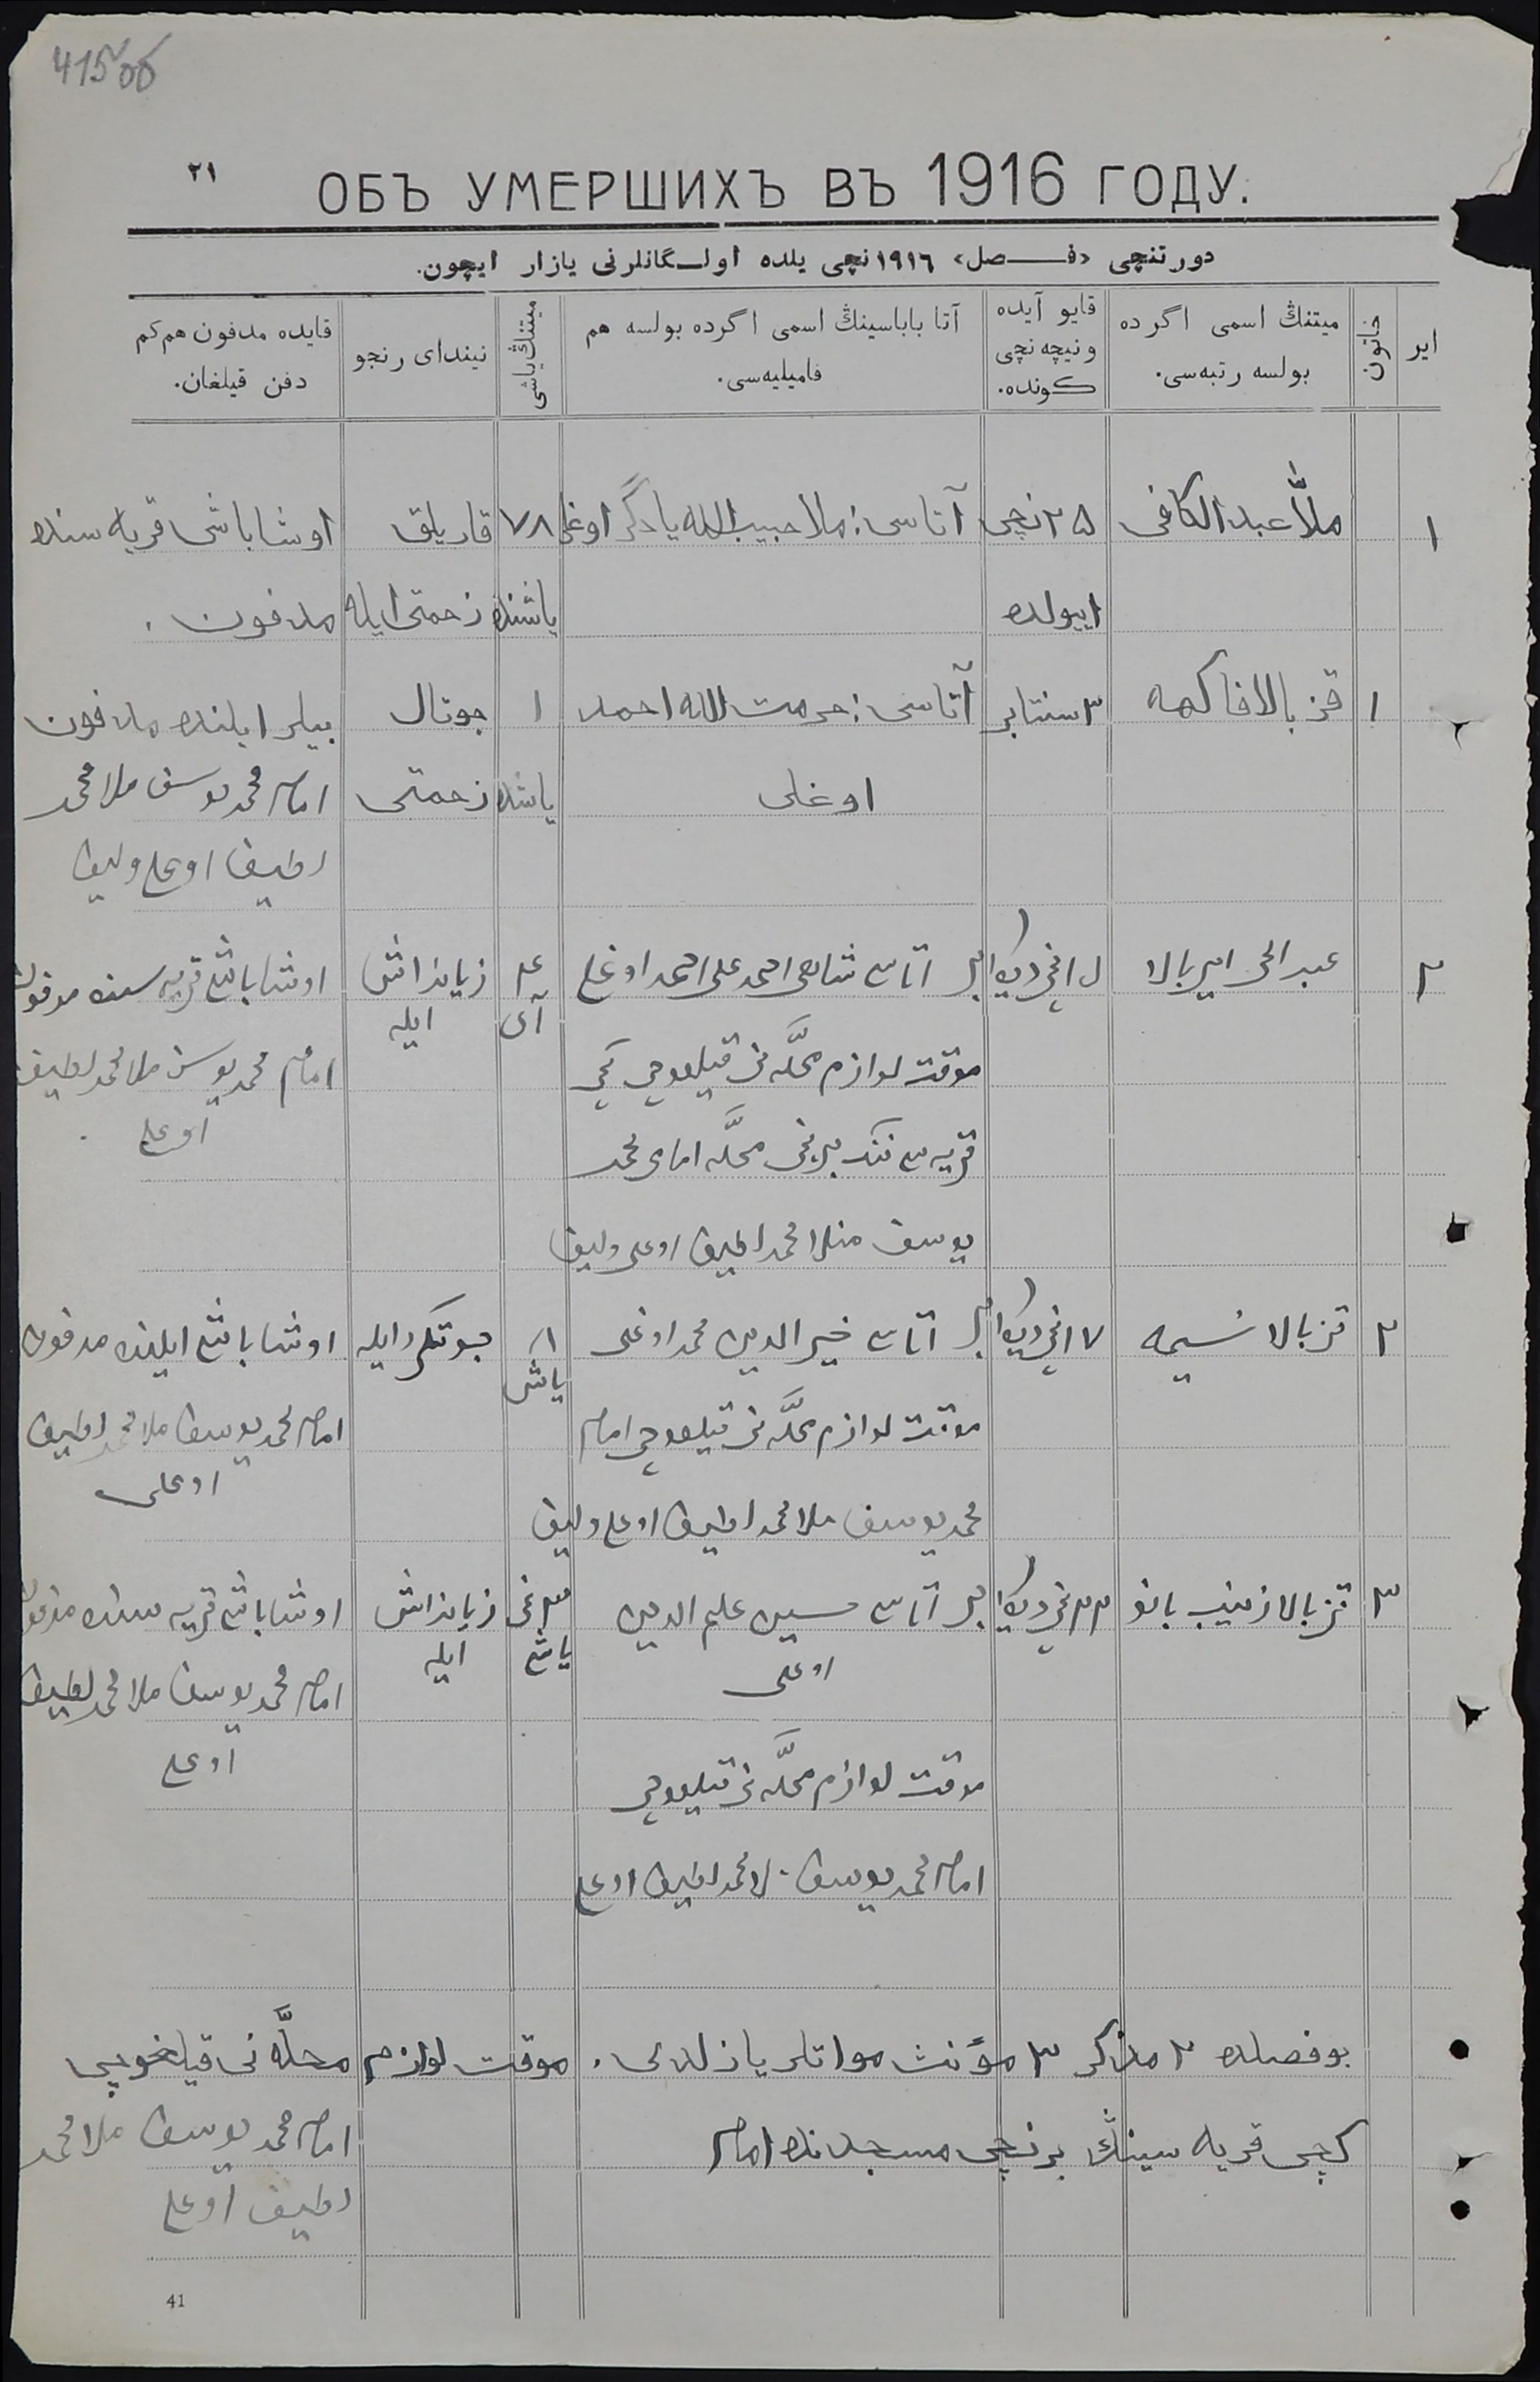 415об
٢١
ОБЪ УМЕРШИХЪ ВЪ 1916 ГОДУ.
دورتنچی «فـصل» ١٩١٦نچی یلده اولـگانلرنی یازار ایچون.
ایر
خاتون
میتنڭ اسمی اگرده
بولسه رتبه‌سی.
قایو آیده
و نیچه نچی
كونده.
آتا باباسینڭ اسمی اگرده بولسه هم
فامیلیه‌سی.
میتنڭ یاشی
نیندای رنجو
قایده مدفون هم كم
دفن قیلغان.
١
ملاّ عبد الكافی
٢٥ نچی
اییولده
آتاسی: ملا حبیب الله یادگر اوغلی
٧٨
یاشنده
قاریلق
زحمتی ایله
اوشاباشی قریه سنده
مدفون.
١
قز بالا فاكهه
٣ سنتابر
آتاسی: حرمت الله احمد
اوغلی
١
یاشده
جوتال
زحمتی
بیلر ایلنده مدفون
امام محمد یوسف ملا محمد
لطیف اوغلی ولیف
٢
عبد الحی ایر بالا
دیكابر
آتاسی احمد علی احمد اوغلی
موقت لوازم محلّه نی قیلغوچی كچی
قریه سی ننك برنچی محلّه امامی محمد
یوسف منلا محمد لطیف اوغلی ولیف
٤
آی
ایله
اوشاباشی قریه سنده مدفون
امام محمد یوسف ملا محمد لطیف
اوغلی
٢
قز بالا نسیمه
١٧ نچی دیكابر
آتاسی خیر الدین محمد اوغلی
موقت لوازم محلّه نی قیلغوچی امام
محمد یوسف ملا محمد لطیف اوغلی ولیف
٨
یاش
ایله
اوشاباشی ایلنده مدفون
امام محمد یوسف ملا محمد لطیف
اوغلی
٣
قز بالا زینب بانو
٢٣ نچی دیكابر
آتاسی حسین علم الدین
اوغلی
موقت لوازم محلّه نی قیلغوچی
امام محمد یوسف ملا محمد لطیف اوغلی
٣ نچی
یاش
ایله
اوشاباشی قریه سنده مدفون
امام محمد یوسف ملا محمد لطیف
اوغلی
بو فصلده ٢ مذكر ٣ مؤنث مواتلر یازلدی. موقت لوازم محلّه نی قیلغوچی
كچی قریه سینڭ برنچی مسجدنده امام
امام محمد یوسف ملا محمد
لطیف اوغلی
41